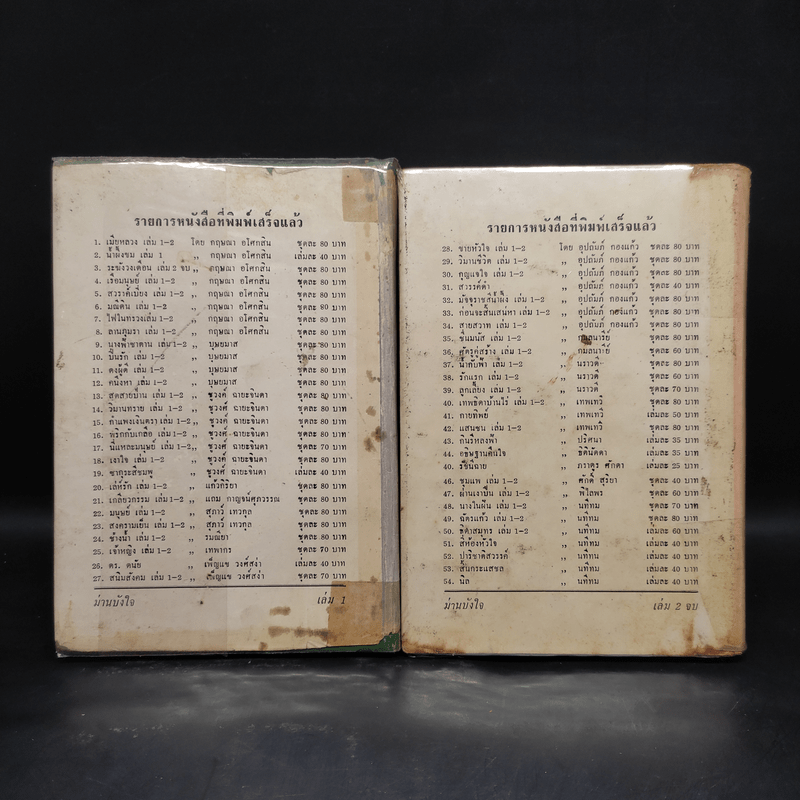 รายการหนังสือที่พิมพ์เสร็จแล้ว
1. เมียหลวง เล่ม 1-2 โดย กฤษณา อโศกสิน ชุดละ 80 บาท
2. น้ำผึ้งขม เล่ม 1 ,, กฤษณา อโศกสิน เล่มละ 40 บาท
3. ระฆังวงเดือน เล่ม 2 จบ ,, กฤษณา อโศกสิน ชุดละ 80 บาท
4. เรือมนุษย์ เล่ม 1-2 ,, กฤษณา อโศกสิน ชุดละ 80 บาท
5. สวรรค์เบี่ยง เล่ม 1-2 ,, กฤษณา อโศกสิน ชุดละ 80 บาท
6. มณีดิน เล่ม 1-2 ,, กฤษณา อโศกสิน ชุดละ 80 บาท
7. ไฟในทรวงเล่ม 1-2 ,, กฤษณา อโศกสิน ชุดละ 80 บาท
8. ลานภุมรา เล่ม 1-2 ,, กฤษณา อโศกสิน ชุดละ 80 บาท
9. นางฟ้าซาตาน เล่ม 1-2 ,, บุษยมาส ชุดละ 80 บาท
10. บันรัก เล่ม 1-2 ,, บุษยมาส ชุดละ 80 บาท
11. ดงผู้ดี เล่ม 1-2 ,, บุษยมาส ชุดละ 80 บาท
12. คนึงหา เล่ม 1-2 ,, บุษยมาส ชุดละ 80 บาท
13. สุดสายป่าน เล่ม 1-2 ,, ชูวงศ์ ฉายะจินดา ชุดละ 80 บาท
14. วิมานทราย เล่ม 1-2 ,, ชูวงศ์ ฉายะจินดา ชุดละ 80 บาท
15. กำแพงเงินตรา เล่ม 1-2 ,, ชูวงศ์ ฉายะจินดา ชุดละ 80 บาท
16. พริกกับเกลือ เล่ม 1-2 ,, ชูวงศ์ ฉายะจินดา ชุดละ 80 บาท
17. นี่แหละมนุษย์ เล่ม 1-2 ,, ชูวงศ์ ฉายะจินดา ชุดละ 70 บาท
18. เงาใจ เล่ม 1-2 ,, ชูวงศ์ ฉายะจินดา ชุดละ 80 บาท
19. ซากุระสีชมพู ,, ชูวงศ์ ฉายะจินดา เล่มละ 40 บาท
20. เล่ห์รัก เล่ม 1-2 ,, แก้วกิริยา ชุดละ 80 บาท
21. เกลียวกรรม เล่ม 1-2 ,, แถม กาญจน์ศุภวรรณ ชุดละ 80 บาท
22. มนุษย์ เล่ม 1-2 ,, สุภาว์ เทวกุล ชุดละ 80 บาท
23. สงครามเย็น เล่ม 1-2 ,, สุภาว์ เทวกุล ชุดละ 80 บาท
24. ช้างน้ำ เล่ม 1-2 ,, รมณียา ชุดละ 80 บาท
25. เจ้าหญิง เล่ม 1-2 ,, เทพากร ชุดละ 70 บาท
26. ดร. ดนัย ,, เพ็ญแข วงศ์สง่า เล่มละ 40 บาท
27. สนิมสังคม เล่ม 1-2 ,, เพ็ญแข วงศ์สง่า ชุดละ 70 บาท
ม่านบังใจ เล่ม 1
รายการหนังสือที่พิมพ์เสร็จแล้ว
28. ชายหัวใจ เล่ม 1-2 โดย อุปถัมภ์ กองแก้ว ชุดละ 80 บาท
29. วิมานชีวิต เล่ม 1-2 ,, อุปถัมภ์ กองแก้ว ชุดละ 80 บาท
30. กุญแจใจ เล่ม 1-2 ,, อุปถัมภ์ กองแก้ว ชุดละ 80 บาท
31. สวรรค์ดำ ,, อุปถัมภ์ กองแก้ว ชุดละ 40 บาท
32. มัจจุราชสีน้ำผึ้ง เล่ม 1-2 ,, อุปถัมภ์ กองแก้ว ชุดละ 80 บาท
33. ก่อนจะสิ้นเสน่หา เล่ม 1-2 ,, อุปถัมภ์ กองแก้ว ชุดละ 80 บาท
34. สายสวาท เล่ม 1-2 ,, อุปถัมภ์ กองแก้ว ชุดละ 80 บาท
35. ชื่นมนัส เล่ม 1-2 ,, กมลนารีย์ ชุดละ 80 บาท
36. ศัตรูคู่สร้าง เล่ม 1-2 ,, กมลนารีย์ ชุดละ 60 บาท
37. น้ำกับฟ้า เล่ม 1-2 ,, นราวดี ชุดละ 80 บาท
38. รักแรก เล่ม 1-2 ,, นราวดี ชุดละ 60 บาท
39. ลูกเลี้ยง เล่ม 1-2 ,, นราวดี ชุดละ 70 บาท
40. เทพธิดาบ้านไร่ เล่ม 1-2 ,, เทพเทวี ชุดละ 80 บาท
41. กายทิพย์ ,, เทพเทวี เล่มละ 50 บาท
42. แสนซน เล่ม 1-2 ,, เทพเทวี ชุดละ 80 บาท
43. กินรีหลงฟ้า ,, ปริศนา เล่มละ 35 บาท
44. อธิษฐานคืนใจ ,, ธิตินัดดา เล่มละ 35 บาท
40. รชนีฉาย ,, ภราดร ศักดา เล่มละ 25 บาท
46. ขุมแพ เล่ม 1-2 ,, ศักดิ์ สุริยา ชุดละ 40 บาท
47. ผ่านเงาปืน เล่ม 1-2 ,, พิไลพร ชุดละ 60 บาท
48. นางในฝัน เล่ม 1-2 ,, นทีทม ชุดละ 70 บาท
49. ฉัตรแก้ว เล่ม 1-2 ,, นทีทม ชุดละ 80 บาท
50. ธิดาสมุทร เล่ม 1-2 ,, นทีทม เล่มละ 60 บาท
51. สี่ห้องหัวใจ ,, นทีทม เล่มละ 40 บาท
52. ปาริชาติสวรรค์ ,, นทีทม เล่มละ 40 บาท
53. สิ้นกระแสชล ,, นทีทม เล่มละ 40 บาท
54. นิล ,, นทีทม เล่มละ 40 บาท
ม่านบังใจ เล่ม 2 จบ